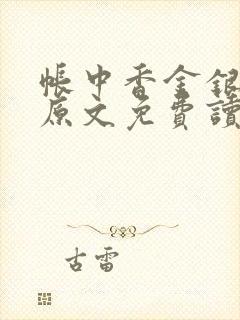 帳中香金銀
原文免費讀
古雷